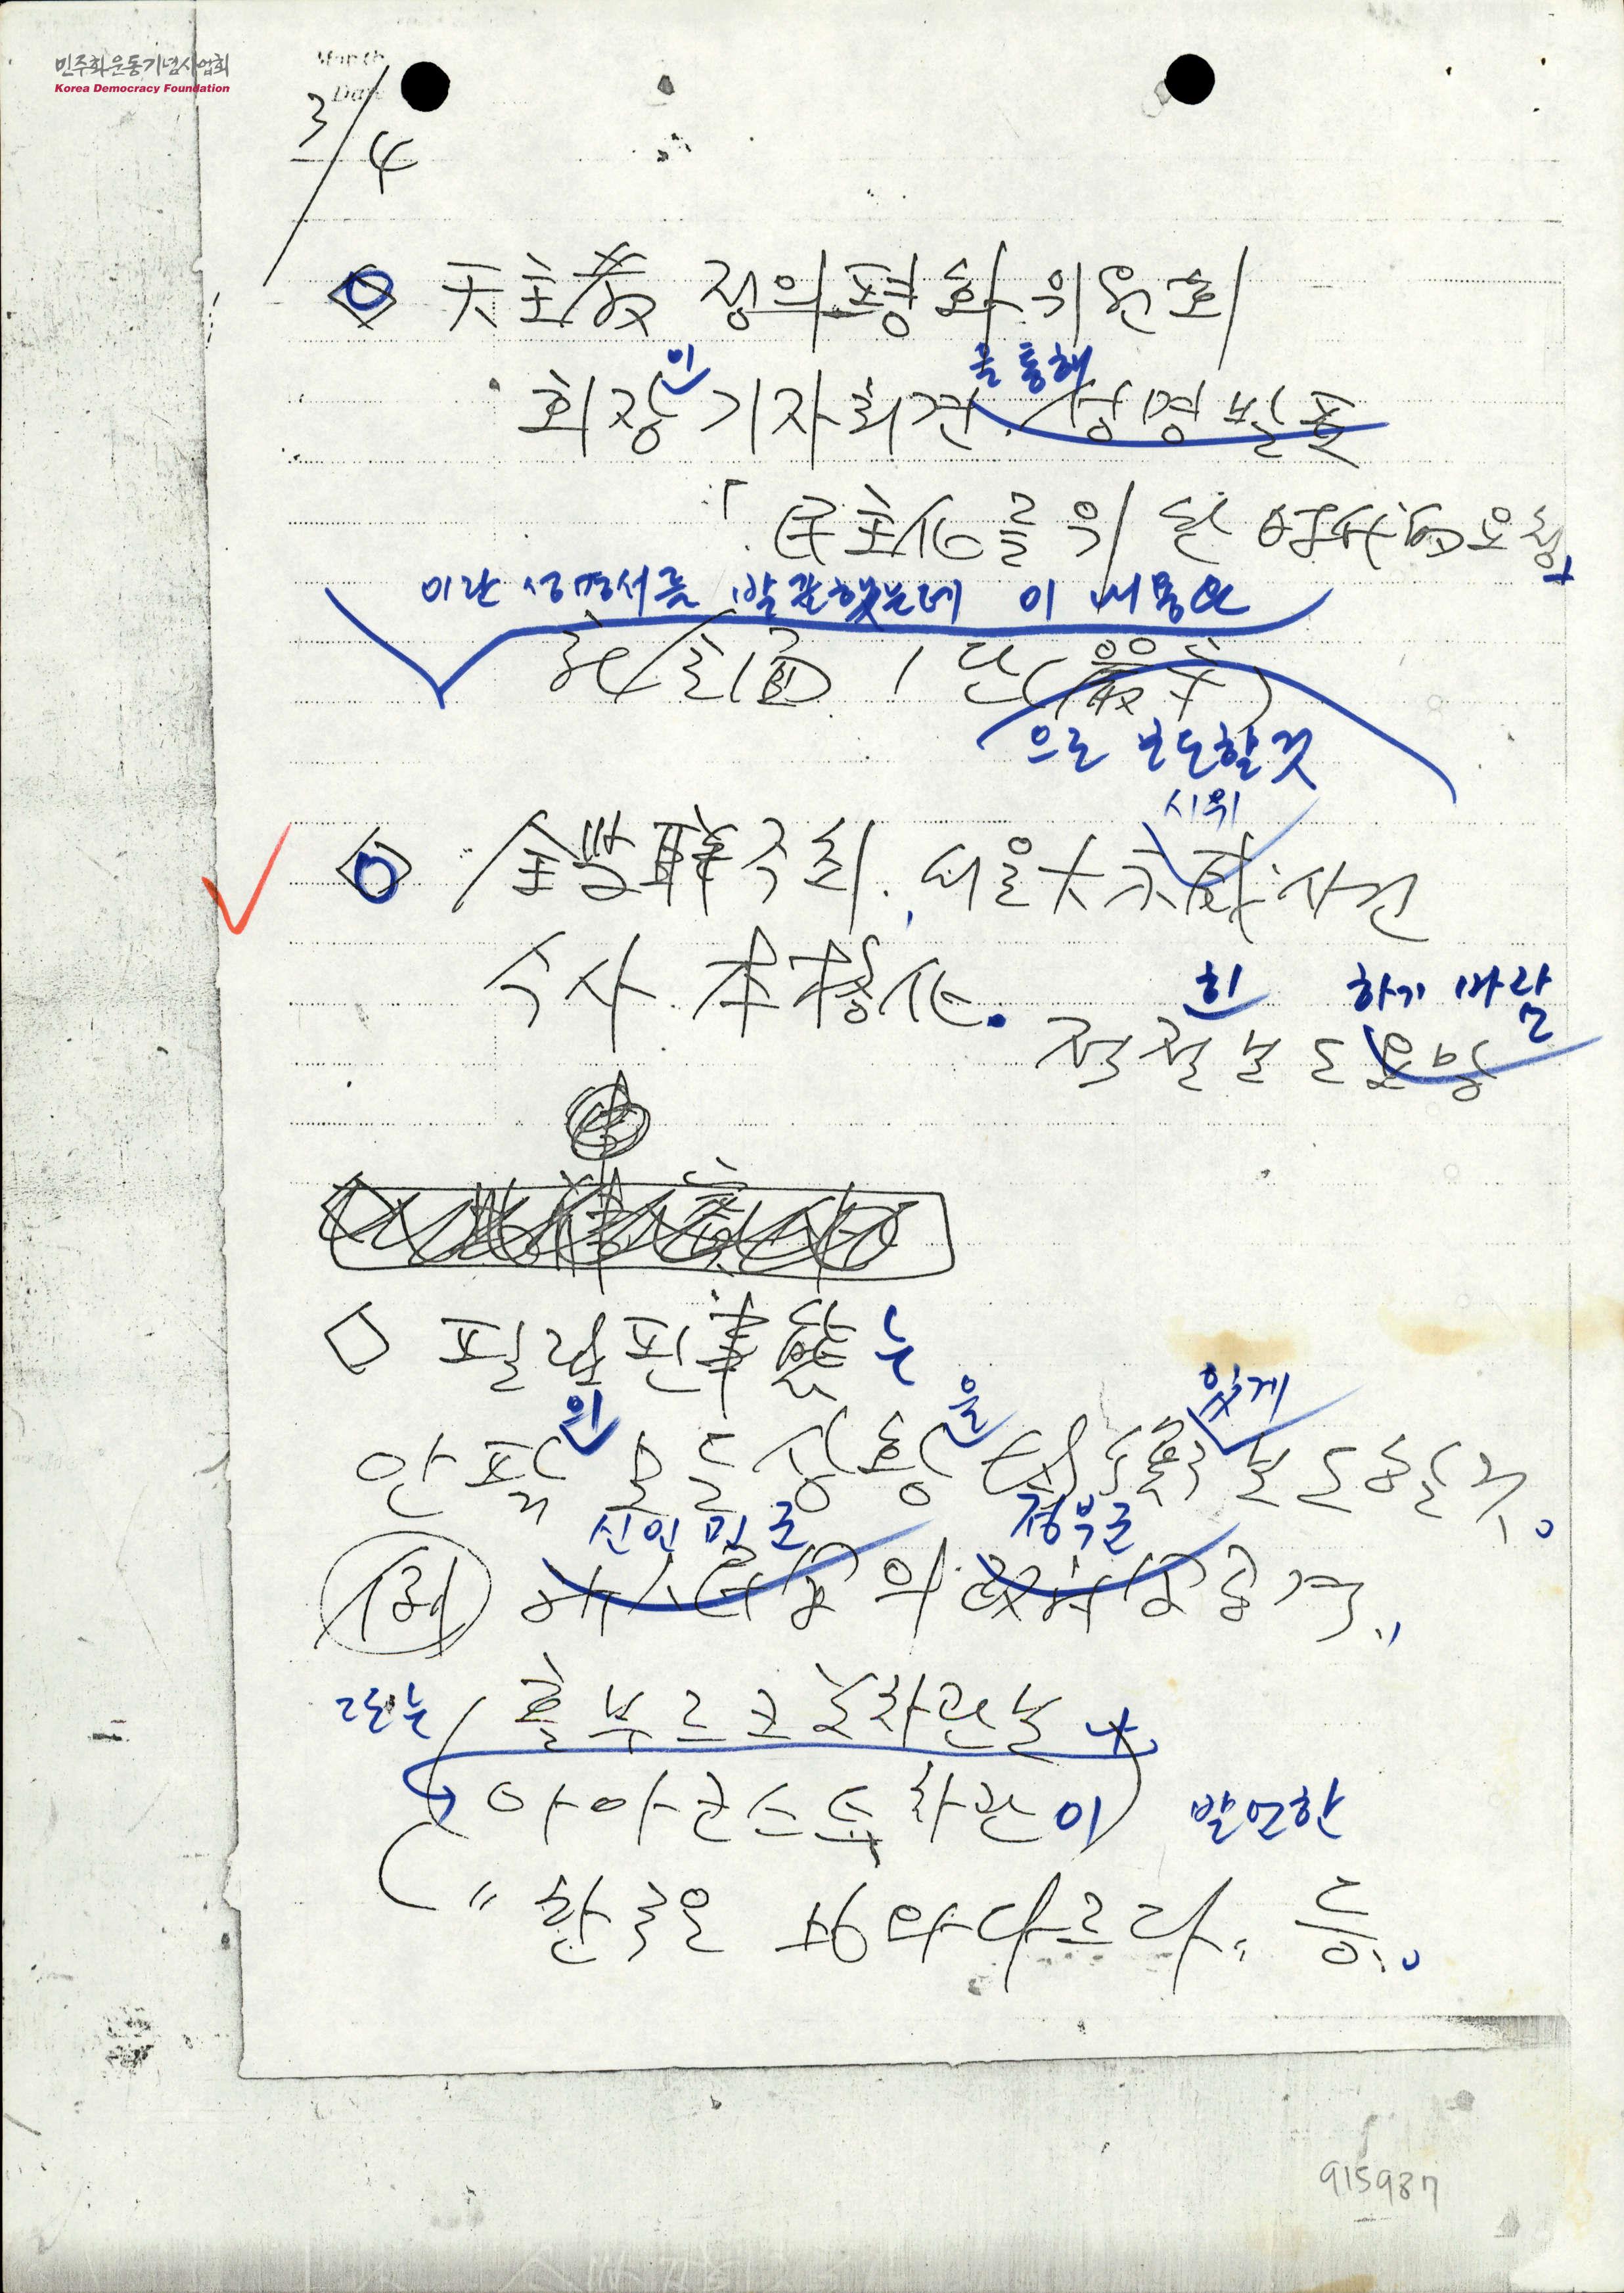 민주화운동기념사업회
Korea Democracy Foundation
Month
Date
3/4
天主敎 정의평화위원회
이 을 통해
회장 기자회견. 성명발표
「民主化를 위한 時代的요청」
이란 성명서를 발표했는데 이 내용은
社会面 1단 (嚴守)
으로 보도할것
시위
全學聯주최, 서울大示威사건
수사 本格化.
히 하기 바람
적절보도요망
필리핀事態는
인 을 있게
안팎 모든 상황 보도할것.
신인민군 정부군
例 의 공격,
또는 홀부르크 차관보나
아마코스트 차관이 발언한
"한국은 比와 다르다" 등.
915987